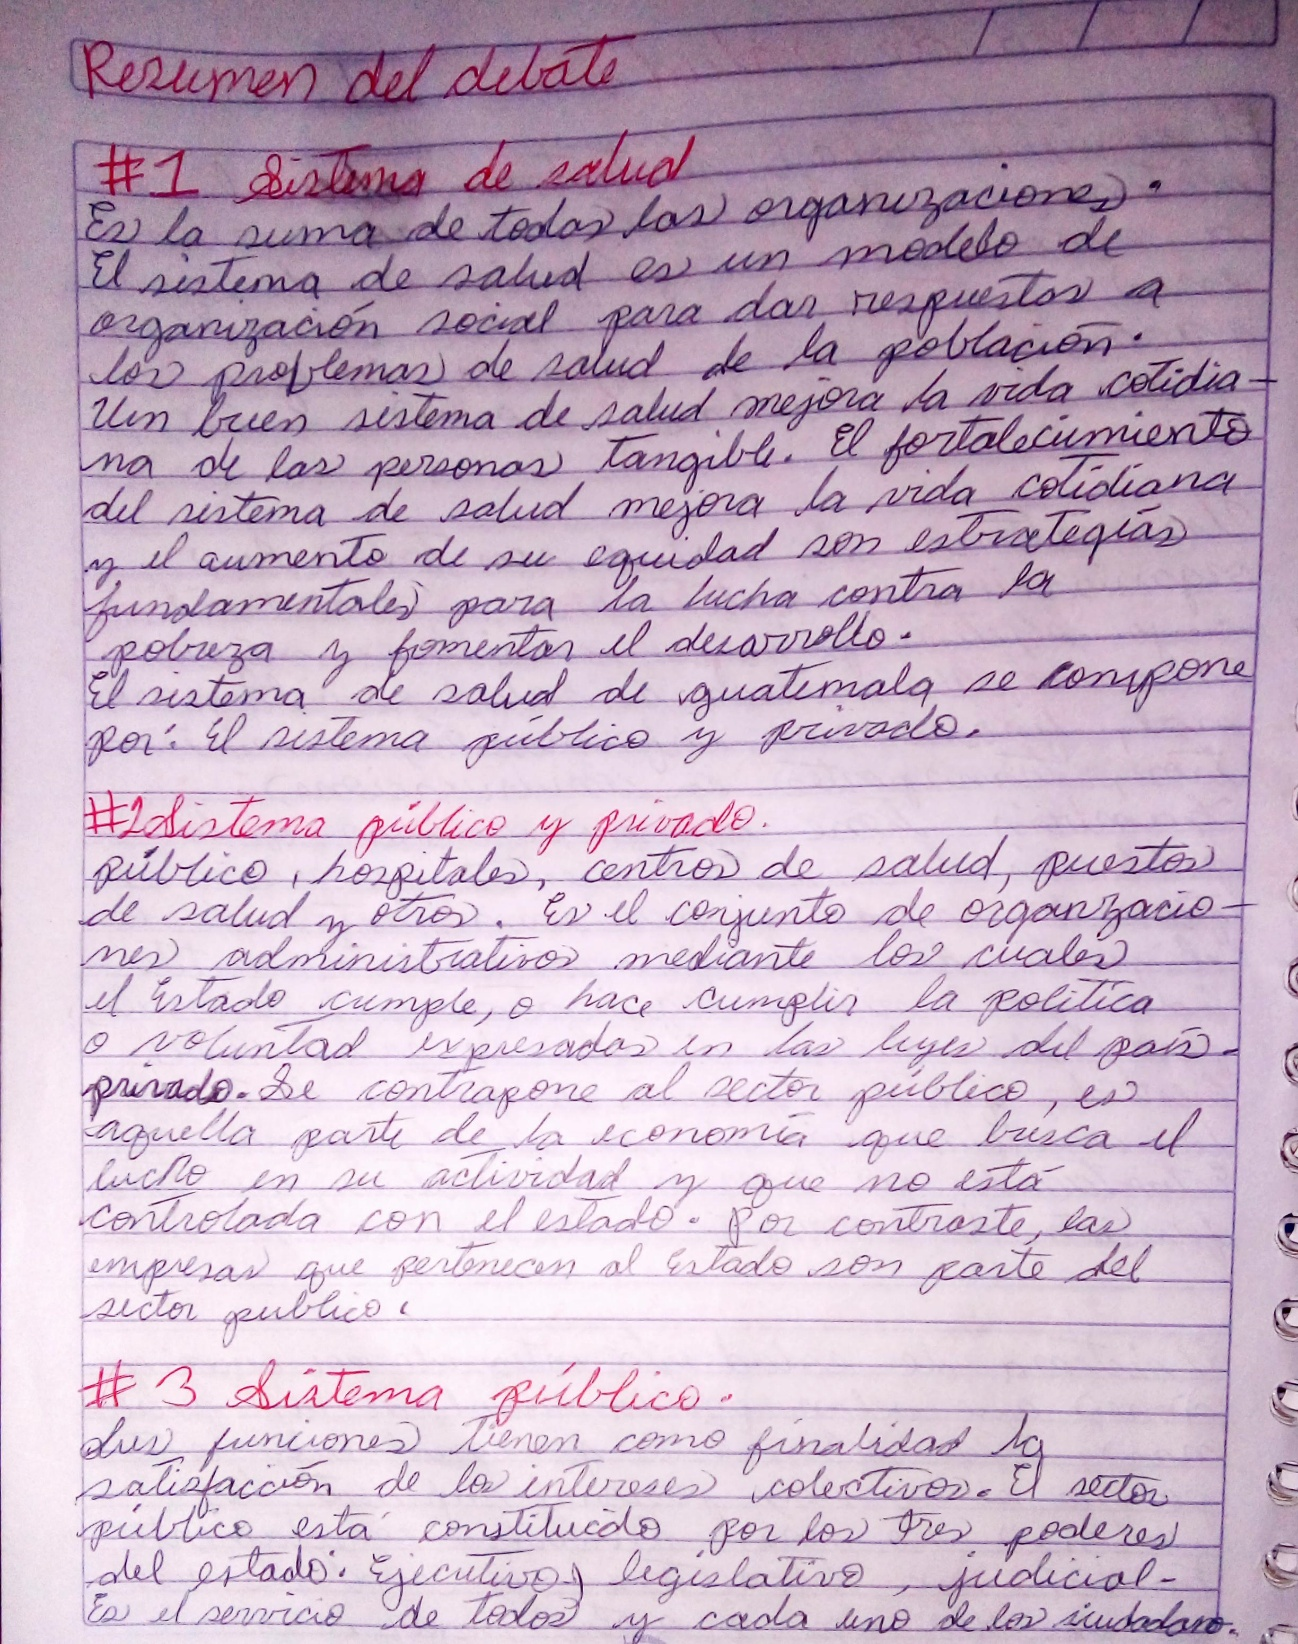 Resumen del debate
#1 Sistema de salud
Es la suma de todas las organizaciones.
El sistema de salud es un modelo de
organización social para dar respuestas a
los problemas de salud de la población.
Un buen sistema de salud mejora la vida cotidia-
na de las personas tangible. El fortalecimiento
del sistema de salud mejora la vida cotidiana
y el aumento de su equidad son estrategias
fundamentales para la lucha contra la
pobreza y fomentar el desarrollo.
El sistema de salud de guatemala se compone
por: El sistema público y privado.
#2 Sistema público y privado.
público, hospitales, centros de salud, puestos
de salud y otros. Es el conjunto de organizacio-
nes administrativos mediante los cuales
el Estado cumple, o hace cumplir la política
o voluntad expresadas en las leyes del país.
privado. Se contrapone al sector público, es
aquella parte de la economía que busca el
lucho en su actividad y que no está
controlada con el estado. Por contraste, las
empresas que pertenecen al Estado son parte del
sector publico.
#3 Sistema público.
Sus funciones tienen como finalidad la
satisfacción de los intereses colectivos. El sector
público está constituido por los tres poderes
del estado: Ejecutivo, legislativo, judicial-
Es el servicio de todos y cada uno de los siudadano.